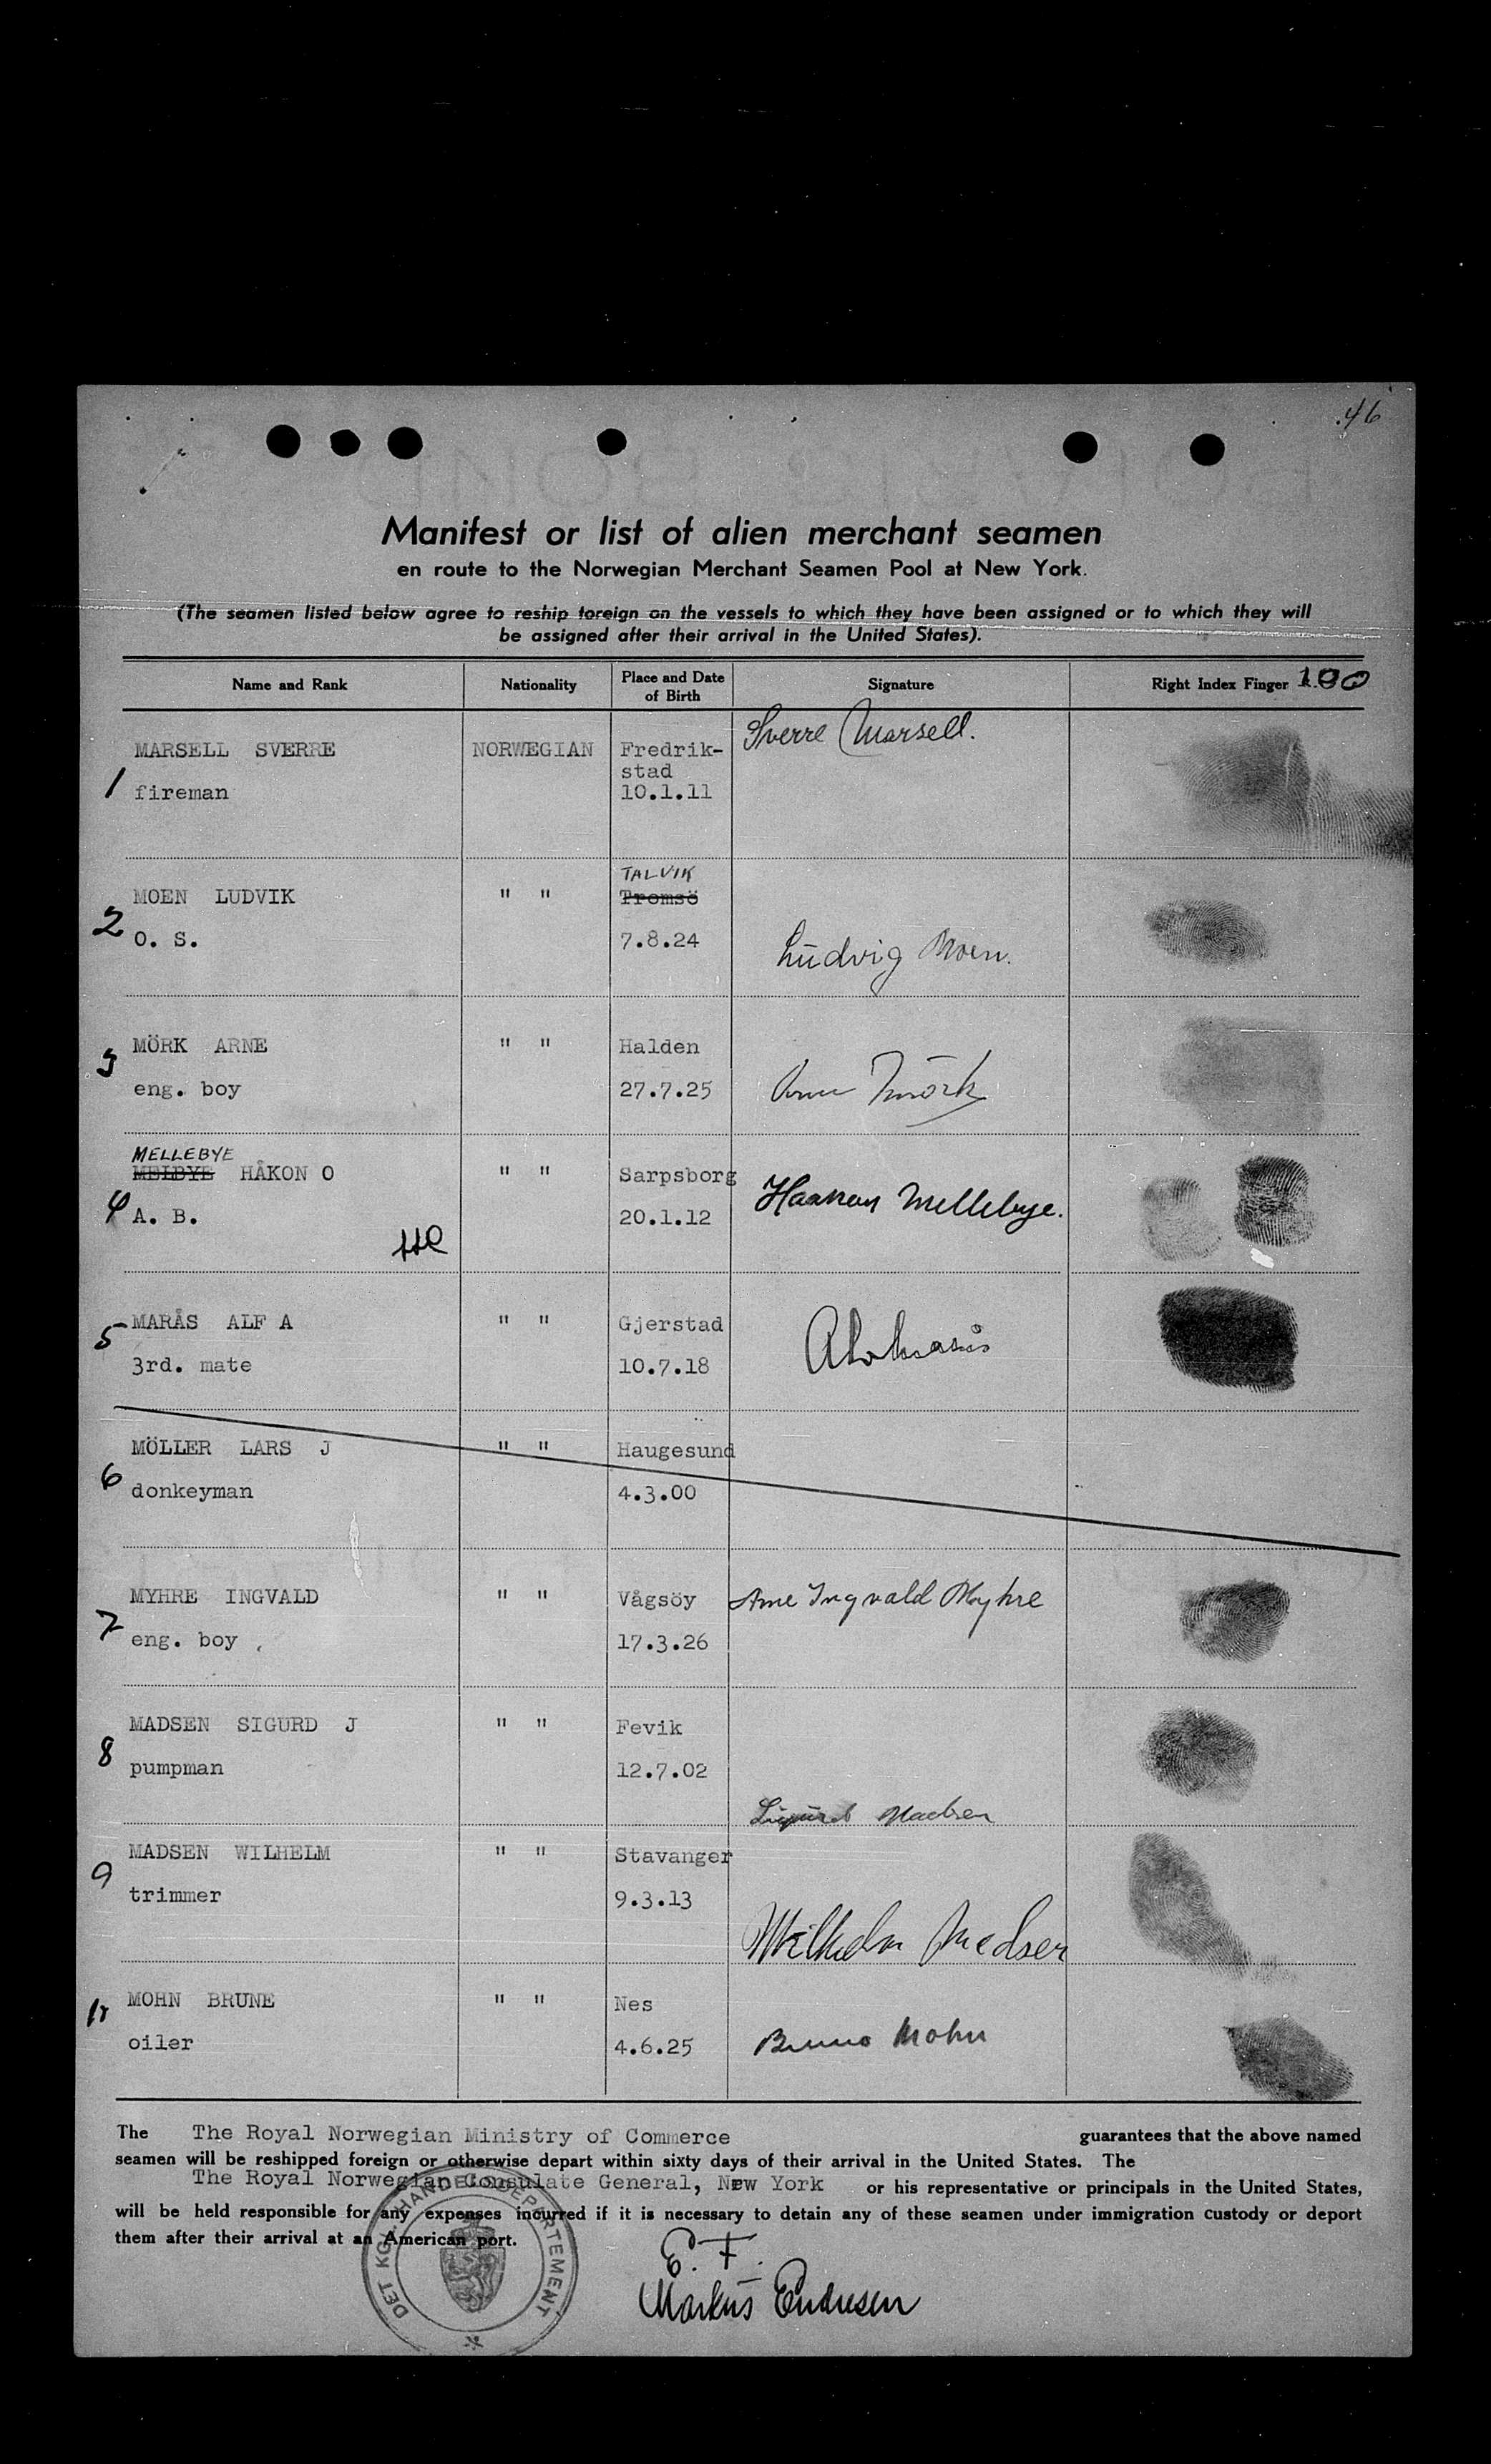 46
Manifest or list of alien merchant seamen
en route to the Norwegian Merchant Seamen Pool at New York.
(The seamen listed below agree to reship foreign on the vessels to which they have been assigned or to which they will
be assigned after their arrival in the United States).
Name and Rank Nationality Place and Date of Birth Signature Right Index Finger 100
1 MARSELL SVERRE NORWEGIAN Fredrik- Sverre Marsell.
stad
fireman 10.1.11
TALVIK
2 MOEN LUDVIK " " Tromsö
O. S. 7.8.24 Ludvig Moen.
3 MÖRK ARNE " " Halden
eng. boy 27.7.25 Arne Mörk
MELLEBYE
4 MELBYE HÅKON O " " Sarpsborg Haakon Mellebye.
A. B. 20.1.12
5 MARÅS ALF A " " Gjerstad
3rd. mate 10.7.18
6 MÖLLER LARS J " " Haugesund
donkeyman 4.3.00
7 MYHRE INGVALD " " Vågsöy Arne Ingvald Myhre
eng. boy 17.3.26
8 MADSEN SIGURD J " " Fevik
pumpman 12.7.02
Sigurd Madsen
9 MADSEN WILHELM " " Stavanger
trimmer 9.3.13
Wilhelm Madsen
MOHN BRUNE " " Nes
oiler 4.6.25 Bruno Mohn
The The Royal Norwegian Ministry of Commerce guarantees that the above named
seamen will be reshipped foreign or otherwise depart within sixty days of their arrival in the United States. The
The Royal Norwegian Consulate General, New York or his representative or principals in the United States,
will be held responsible for any expenses incurred if it is necessary to detain any of these seamen under immigration custody or deport
them after their arrival at an American port.
DET KGL. HANDELSDEPARTEMENT
E. F.
Markus Endresen